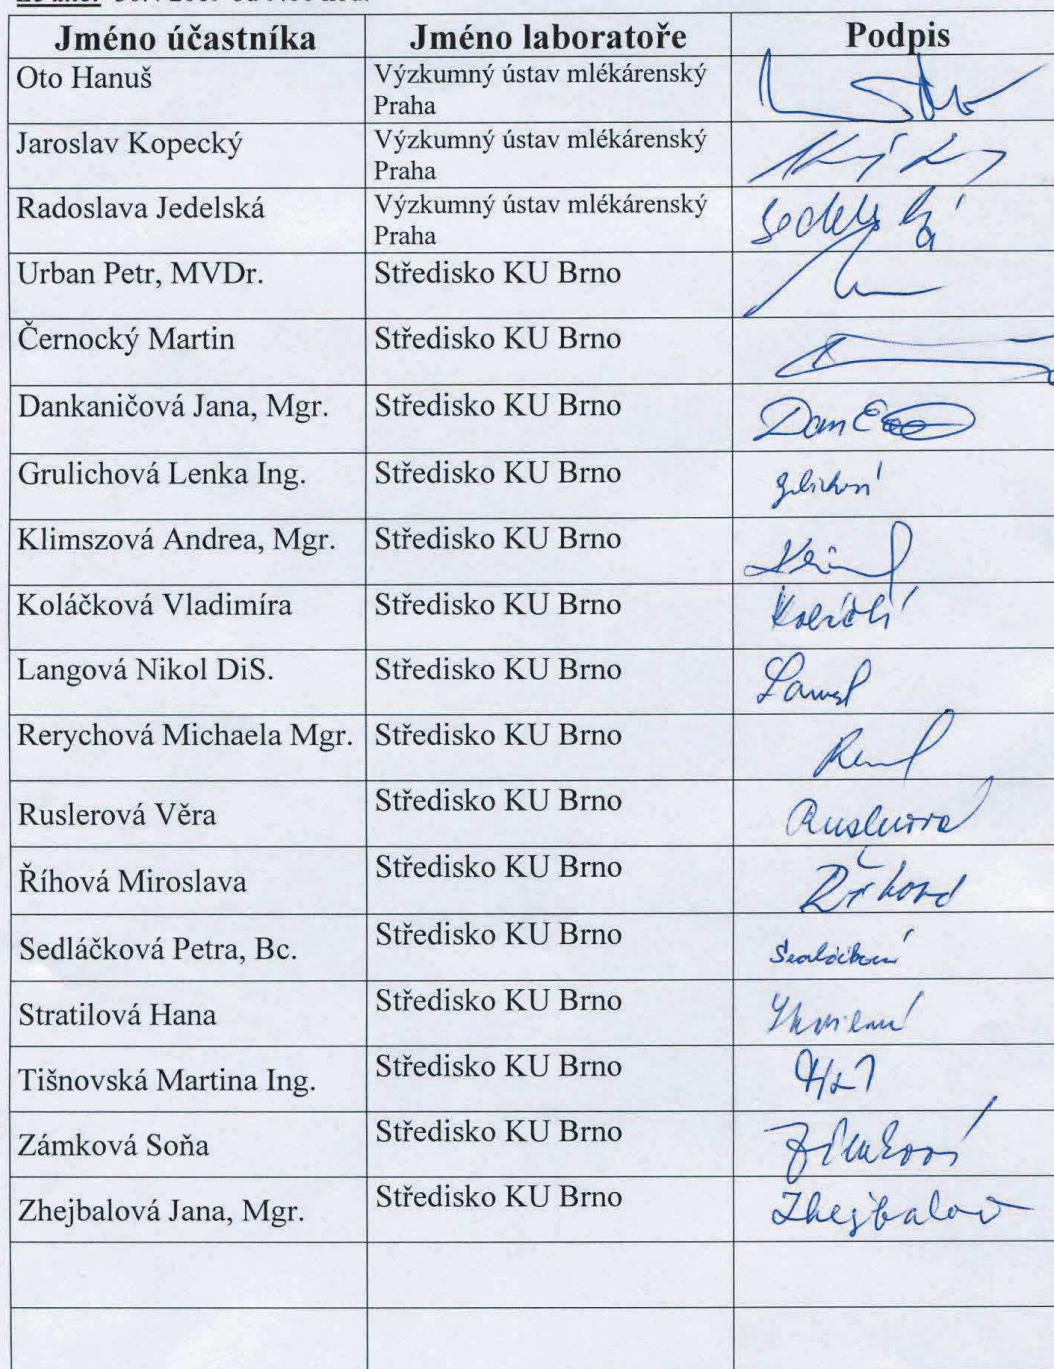 Jméno účastníka Jméno laboratoře Podpis
Oto Hanuš Výzkumný ústav mlékárenský
Praha
Jaroslav Kopecký Výzkumný ústav mlékárenský
Praha
Radoslava Jedelská Výzkumný ústav mlékárenský
Praha
Urban Petr, MVDr. Středisko KU Brno
Černocký Martin Středisko KU Brno
Dankaničová Jana, Mgr. Středisko KU Brno
Grulichová Lenka Ing. Středisko KU Brno
Klimszová Andrea, Mgr. Středisko KU Brno
Koláčková Vladimíra Středisko KU Brno
Langová Nikol DiS. Středisko KU Brno
Rerychová Michaela Mgr. Středisko KU Brno
Ruslerová Věra Středisko KU Brno
Říhová Miroslava Středisko KU Brno
Sedláčková Petra, Bc. Středisko KU Brno
Stratilová Hana Středisko KU Brno
Tišnovská Martina Ing. Středisko KU Brno
Zámková Soňa Středisko KU Brno
Zhejbalová Jana, Mgr. Středisko KU Brno